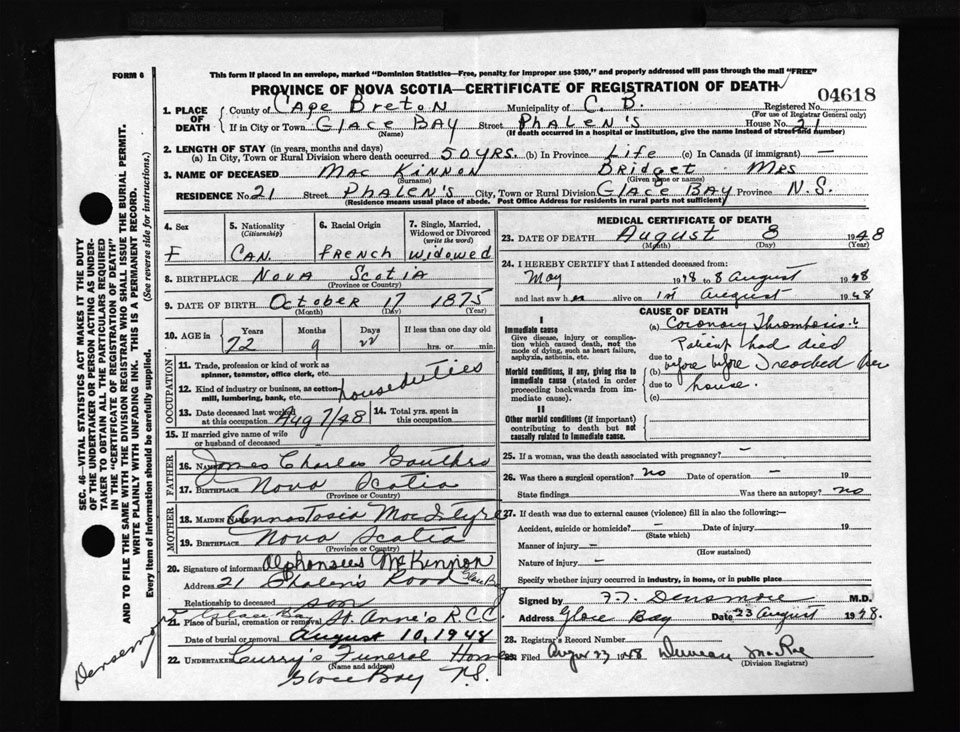 FORM 6
This form if placed in an envelope, marked "Dominion Statistics—Free, penalty for improper use $300," and properly addressed will pass through the mail "FREE"
PROVINCE OF NOVA SCOTIA—CERTIFICATE OF REGISTRATION OF DEATH
04618
1. PLACE OF DEATH County of Cape Breton Municipality of C. B. Registered No.
(For use of Registrar General only)
If in City or Town Glace Bay Street Phalen's House No. 21
(Name) (If death occurred in a hospital or institution, give the name instead of street and number)
2. LENGTH OF STAY (in years, months and days)
(a) In City, Town or Rural Division where death occurred 50 YRS. (b) In Province Life (c) In Canada (if immigrant) —
3. NAME OF DECEASED Mac Kinnon Bridget Mrs
(Surname) (Given name or names)
RESIDENCE No. 21 Street Phalen's City, Town or Rural Division Glace Bay Province N.S.
(Residence means usual place of abode. Post Office Address for residents in rural parts not sufficient)
4. Sex F
5. Nationality (Citizenship) Can.
6. Racial Origin French
7. Single, Married, Widowed or Divorced (write the word) Widowed
8. BIRTHPLACE Nova Scotia
(Province or Country)
9. DATE OF BIRTH October 17 1875
(Month) (Day) (Year)
10. AGE in Years Months Days If less than one day old
72 9 22 hrs. or min.
OCCUPATION
11. Trade, profession or kind of work as spinner, teamster, office clerk, etc.
12. Kind of industry or business, as cotton mill, lumbering, bank, etc. house duties
13. Date deceased last worked at this occupation Aug 7/48
14. Total yrs. spent in this occupation
15. If married give name of wife or husband of deceased
FATHER
16. Name James Charles Gouthro
17. BIRTHPLACE Nova Scotia
(Province or Country)
MOTHER
18. MAIDEN NAME Annastasia MacIntyre
19. BIRTHPLACE Nova Scotia
(Province or Country)
20. Signature of informant Alphonsus McKinnon
Address 21 Phalen's Road Glace Bay
Relationship to deceased son
21. Place of burial, cremation or removal Glace Bay St. Anne's R.C.C.
Date of burial or removal August 10, 1948
22. UNDERTAKER Curry's Funeral Home
(Name and address)
Glace Bay N.S.
MEDICAL CERTIFICATE OF DEATH
23. DATE OF DEATH August 8 1948
(Month) (Day) (Year)
24. I HEREBY CERTIFY that I attended deceased from:
May 1948 to 8 August 1948
and last saw her alive on 1st August 1948
CAUSE OF DEATH
I
Immediate cause
Give disease, injury or complication which caused death, not the mode of dying, such as heart failure, asphyxia, asthenia, etc.
(a) Coronary Thrombosis.
Patient had died
Morbid conditions, if any, giving rise to immediate cause (stated in order proceeding backwards from immediate cause).
due to
(b) before before I reached her
due to house.
(c)
II
Other morbid conditions (if important) contributing to death but not causally related to immediate cause.
25. If a woman, was the death associated with pregnancy? —
26. Was there a surgical operation? no Date of operation — 19
State findings Was there an autopsy? no
27. If death was due to external causes (violence) fill in also the following:—
Accident, suicide or homicide? — Date of injury 19
(State which)
Manner of injury —
(How sustained)
Nature of injury —
Specify whether injury occurred in industry, in home, or in public place
Signed by F.T. Densmore M.D.
Address Glace Bay Date 23 August 1948.
28. Registrar's Record Number
29. Filed August 23 1948 Duncan MacRae
(Division Registrar)
SEC. 46—VITAL STATISTICS ACT MAKES IT THE DUTY
OF THE UNDERTAKER OR PERSON ACTING AS UNDERTAKER
TO OBTAIN ALL THE PARTICULARS REQUIRED
IN THE "CERTIFICATE OF REGISTRATION OF DEATH"
AND TO FILE THE SAME WITH THE DIVISION REGISTRAR WHO SHALL ISSUE THE BURIAL PERMIT.
WRITE PLAINLY WITH UNFADING INK. THIS IS A PERMANENT RECORD.
Every item of information should be carefully supplied. (See reverse side for instructions.)